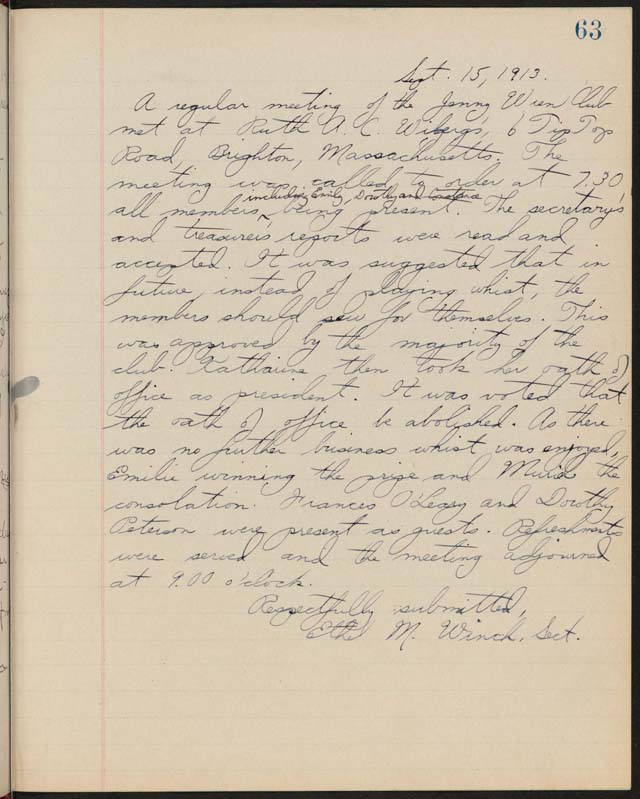 63
Sept. 15, 1913.
A regular meeting of the Jenny Wren Club
met at Ruth A. C. Wiberg's, 6 Tip Top
Road, Brighton, Massachusetts. The
meeting was called to order at 7.30,
including Emily, Dorothy and Constance
all members ^ being present. The secretary's
and treasurer's reports were read and
accepted. It was suggested that in
future, instead of playing whist, the
members should sew for themselves. This
was approved by the majority of the
club. Katharine then took her oath of
office as president. It was voted that
the oath of office be abolished. As there
was no further business whist was enjoyed,
Emilie winning the prize and Muriel the
consolation. Frances O'Leary and Dorothy
Peterson were present as guests. Refreshments
were served and the meeting adjourned
at 9.00 o'clock.
Respectfully submitted,
Ethel M. Winch, Sect.